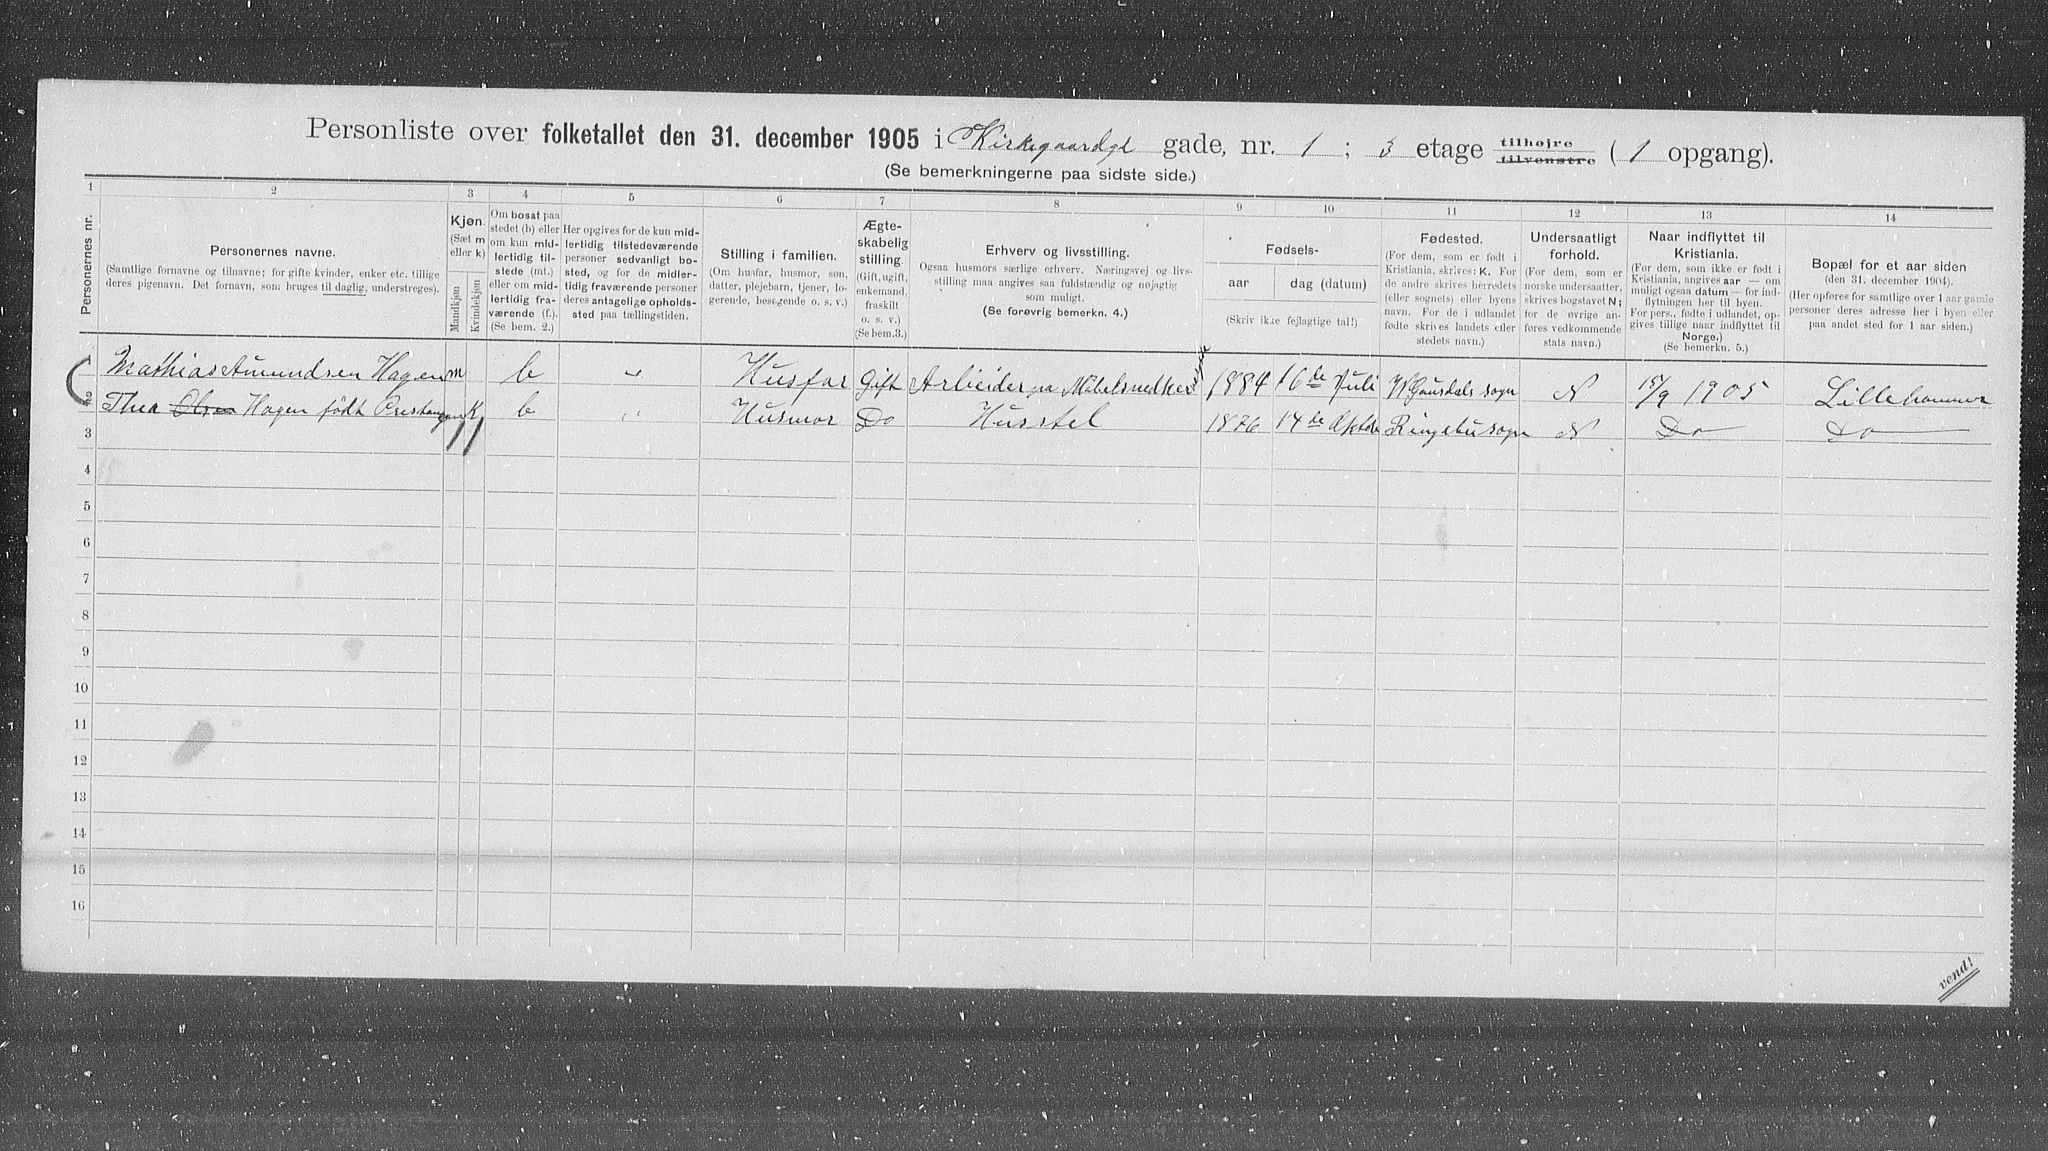 Personliste over folketallet den 31. december 1905 i Kirkegaardsgt gade, nr. 1 ; 3 etage tilhøjre tilvenstre ( 1 opgang).
(Se bemerkningerne paa sidste side.)
1 2 3 4 5 6 7 8 9 10 11 12 13 14
Personernes nr.
Personernes navne.
(Samtlige fornavne og tilnavne; for gifte kvinder, enker etc. tillige
deres pigenavn. Det fornavn, som bruges til daglig, understreges).
Kjøn.
(Sæt m
eller k)
Mandkjøn
Kvindekjøn
Om bosat paa
stedet (b) eller
om kun mid-
lertidig til-
stede (mt.)
eller om mid-
lertidig fra-
værende (f.).
(Se bem. 2.)
Her opgives for de kun mid-
lertidig tilstedeværende
personer sedvanligt bo-
sted, og for de midler-
tidig fraværende personer
deres antagelige opholds-
sted paa tællingstiden.
Stilling i familien.
(Om husfar, husmor, søn,
datter, plejebarn, tjener, lo-
gerende, besøgende o. s. v.)
Ægte-
skabelig
stilling.
(Gift, ugift,
enkemand,
fraskilt
o. s. v.)
(Se bem.3.)
Erhverv og livsstilling.
Ogsaa husmors særlige erhverv. Næringsvej og livs-
stilling maa angives saa fuldstændig og nøjagtig
som muligt.
(Se forøvrig bemerkn. 4.)
Fødsels-
aar
dag (datum)
(Skriv ikke fejlagtige tal!)
Fødested.
(For dem, som er født i
Kristiania, skrives: K. For
de andre skrives herredets
(eller sognets) eller byens
navn. For de i udlandet
fødte skrives landets eller
stedets navn.)
Undersaatligt
forhold.
(For dem, som er
norske undersaatter,
skrives bogstavet N;
for de øvrige an-
føres vedkommende
stats navn.)
Naar indflyttet til
Kristiania.
(For dem, som ikke er født i
Kristiania, angives aar — om
muligt ogsaa datum — for ind-
flytningen her til byen.
For pers., fødte i udlandet, op-
gives tillige naar indflyttet til
Norge.)
(Se bemerkn. 5.)
Bopæl for et aar siden
(den 31. december 1904).
(Her opføres for samtlige over 1 aar gamle
personer deres adresse her i byen eller
paa andet sted for 1 aar siden.)
1 Mathias Amundsen Hagen m b " Husfar Gift Arbeider paa Møbelsnedker 1884 16de Juli V. Gausdals sogn N 15/9 1905 Lillehammer
2 Thea Olsen Hagen født K b " Husmor Do Husstel 1876 14de Oktbr Ringebu sogn N Do Do
3
4
5
6
7
8
9
10
11
12
13
14
15
16
vend!